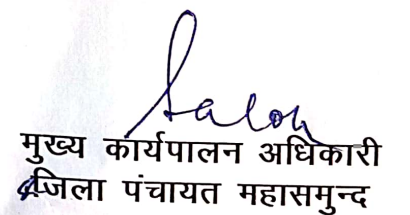 मुख्य कार्यपालन अधिकारी
जिला पंचायत महासमुन्द